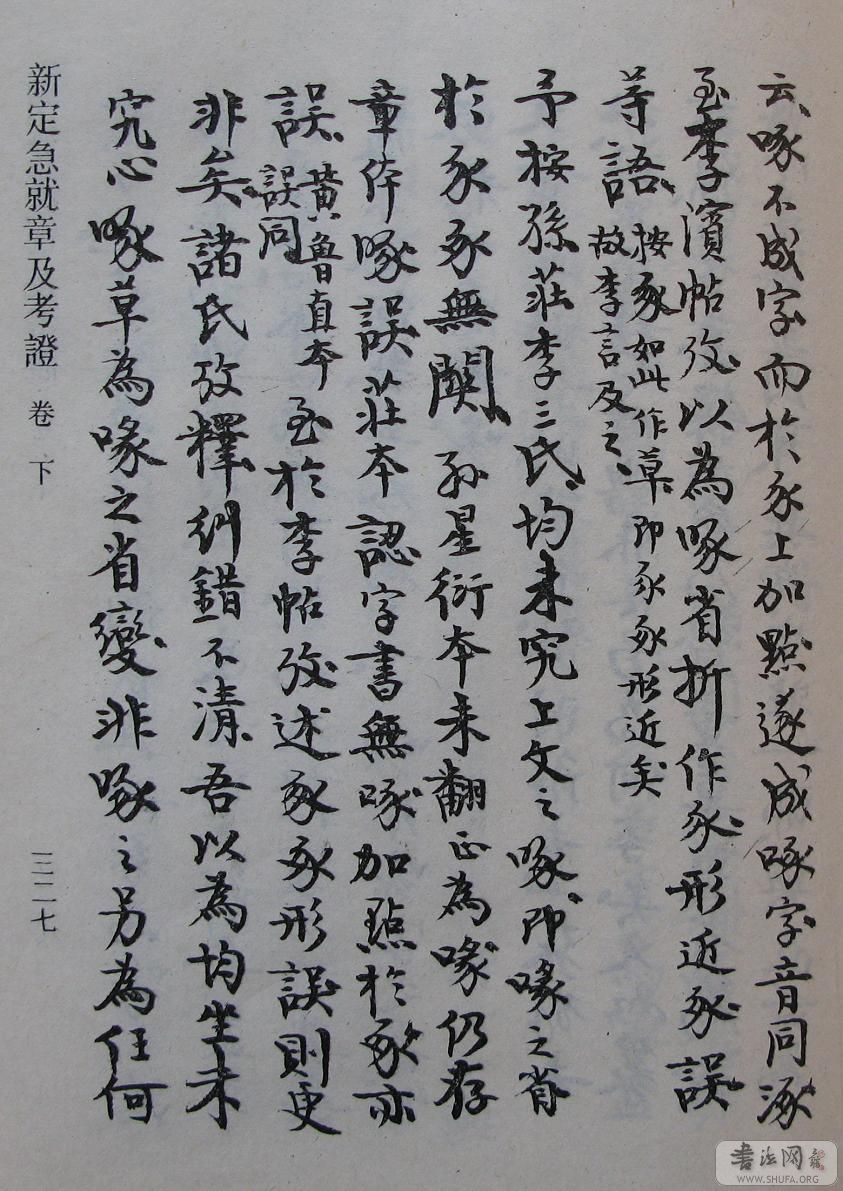 云、啄不成字而於豕上加點遂成啄字音同涿
至李濱帖攷以為啄省折作豕形近豕誤
等語、按豕如此作草、即豕豕形近矣
故李言及之、
予按孫莊李三氏、均未究上文之啄、即喙之省
於豕豕無關、孫星衍本未翻正為喙仍存
章作啄誤莊本認字書無啄加點於豕亦
誤、黃魯直本至於李帖攷述豕豕形誤則更
誤同
非矣諸氏攷釋糾錯不清吾以為均坐未
究心啄草為喙之省變、非啄之另為任何
新定急就章及考證 卷下
三二七
书法网
WWW.SHUFA.ORG